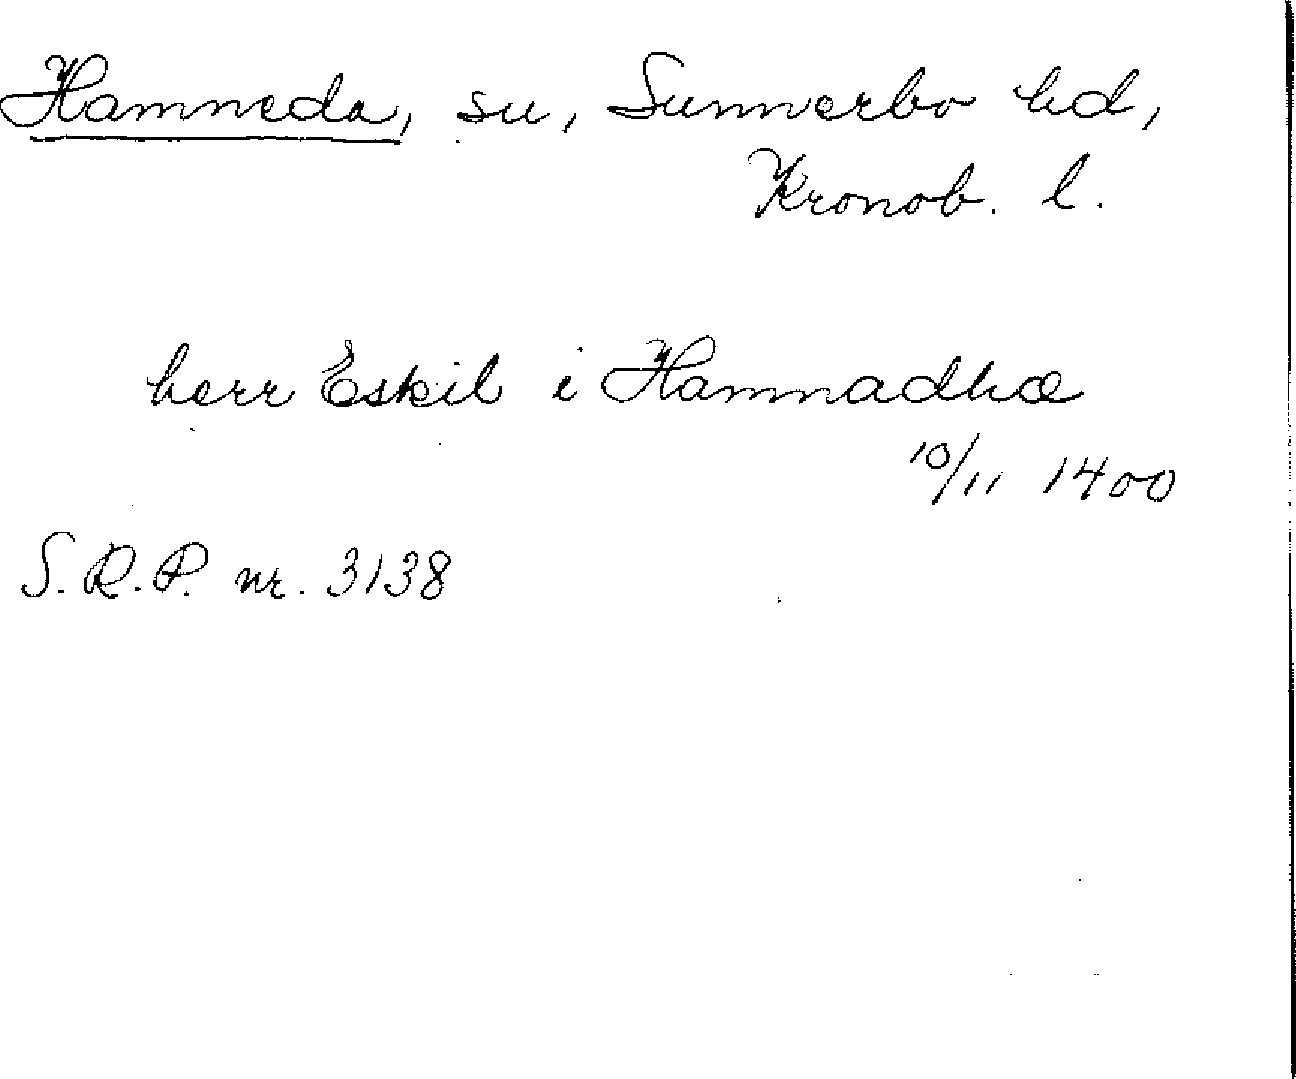 Hamneda, sn, Sunnerbo hd,
Kronob. l.
herr Eskil i Hamnadhæ
10/11 1400
S.R.P. nr. 3138